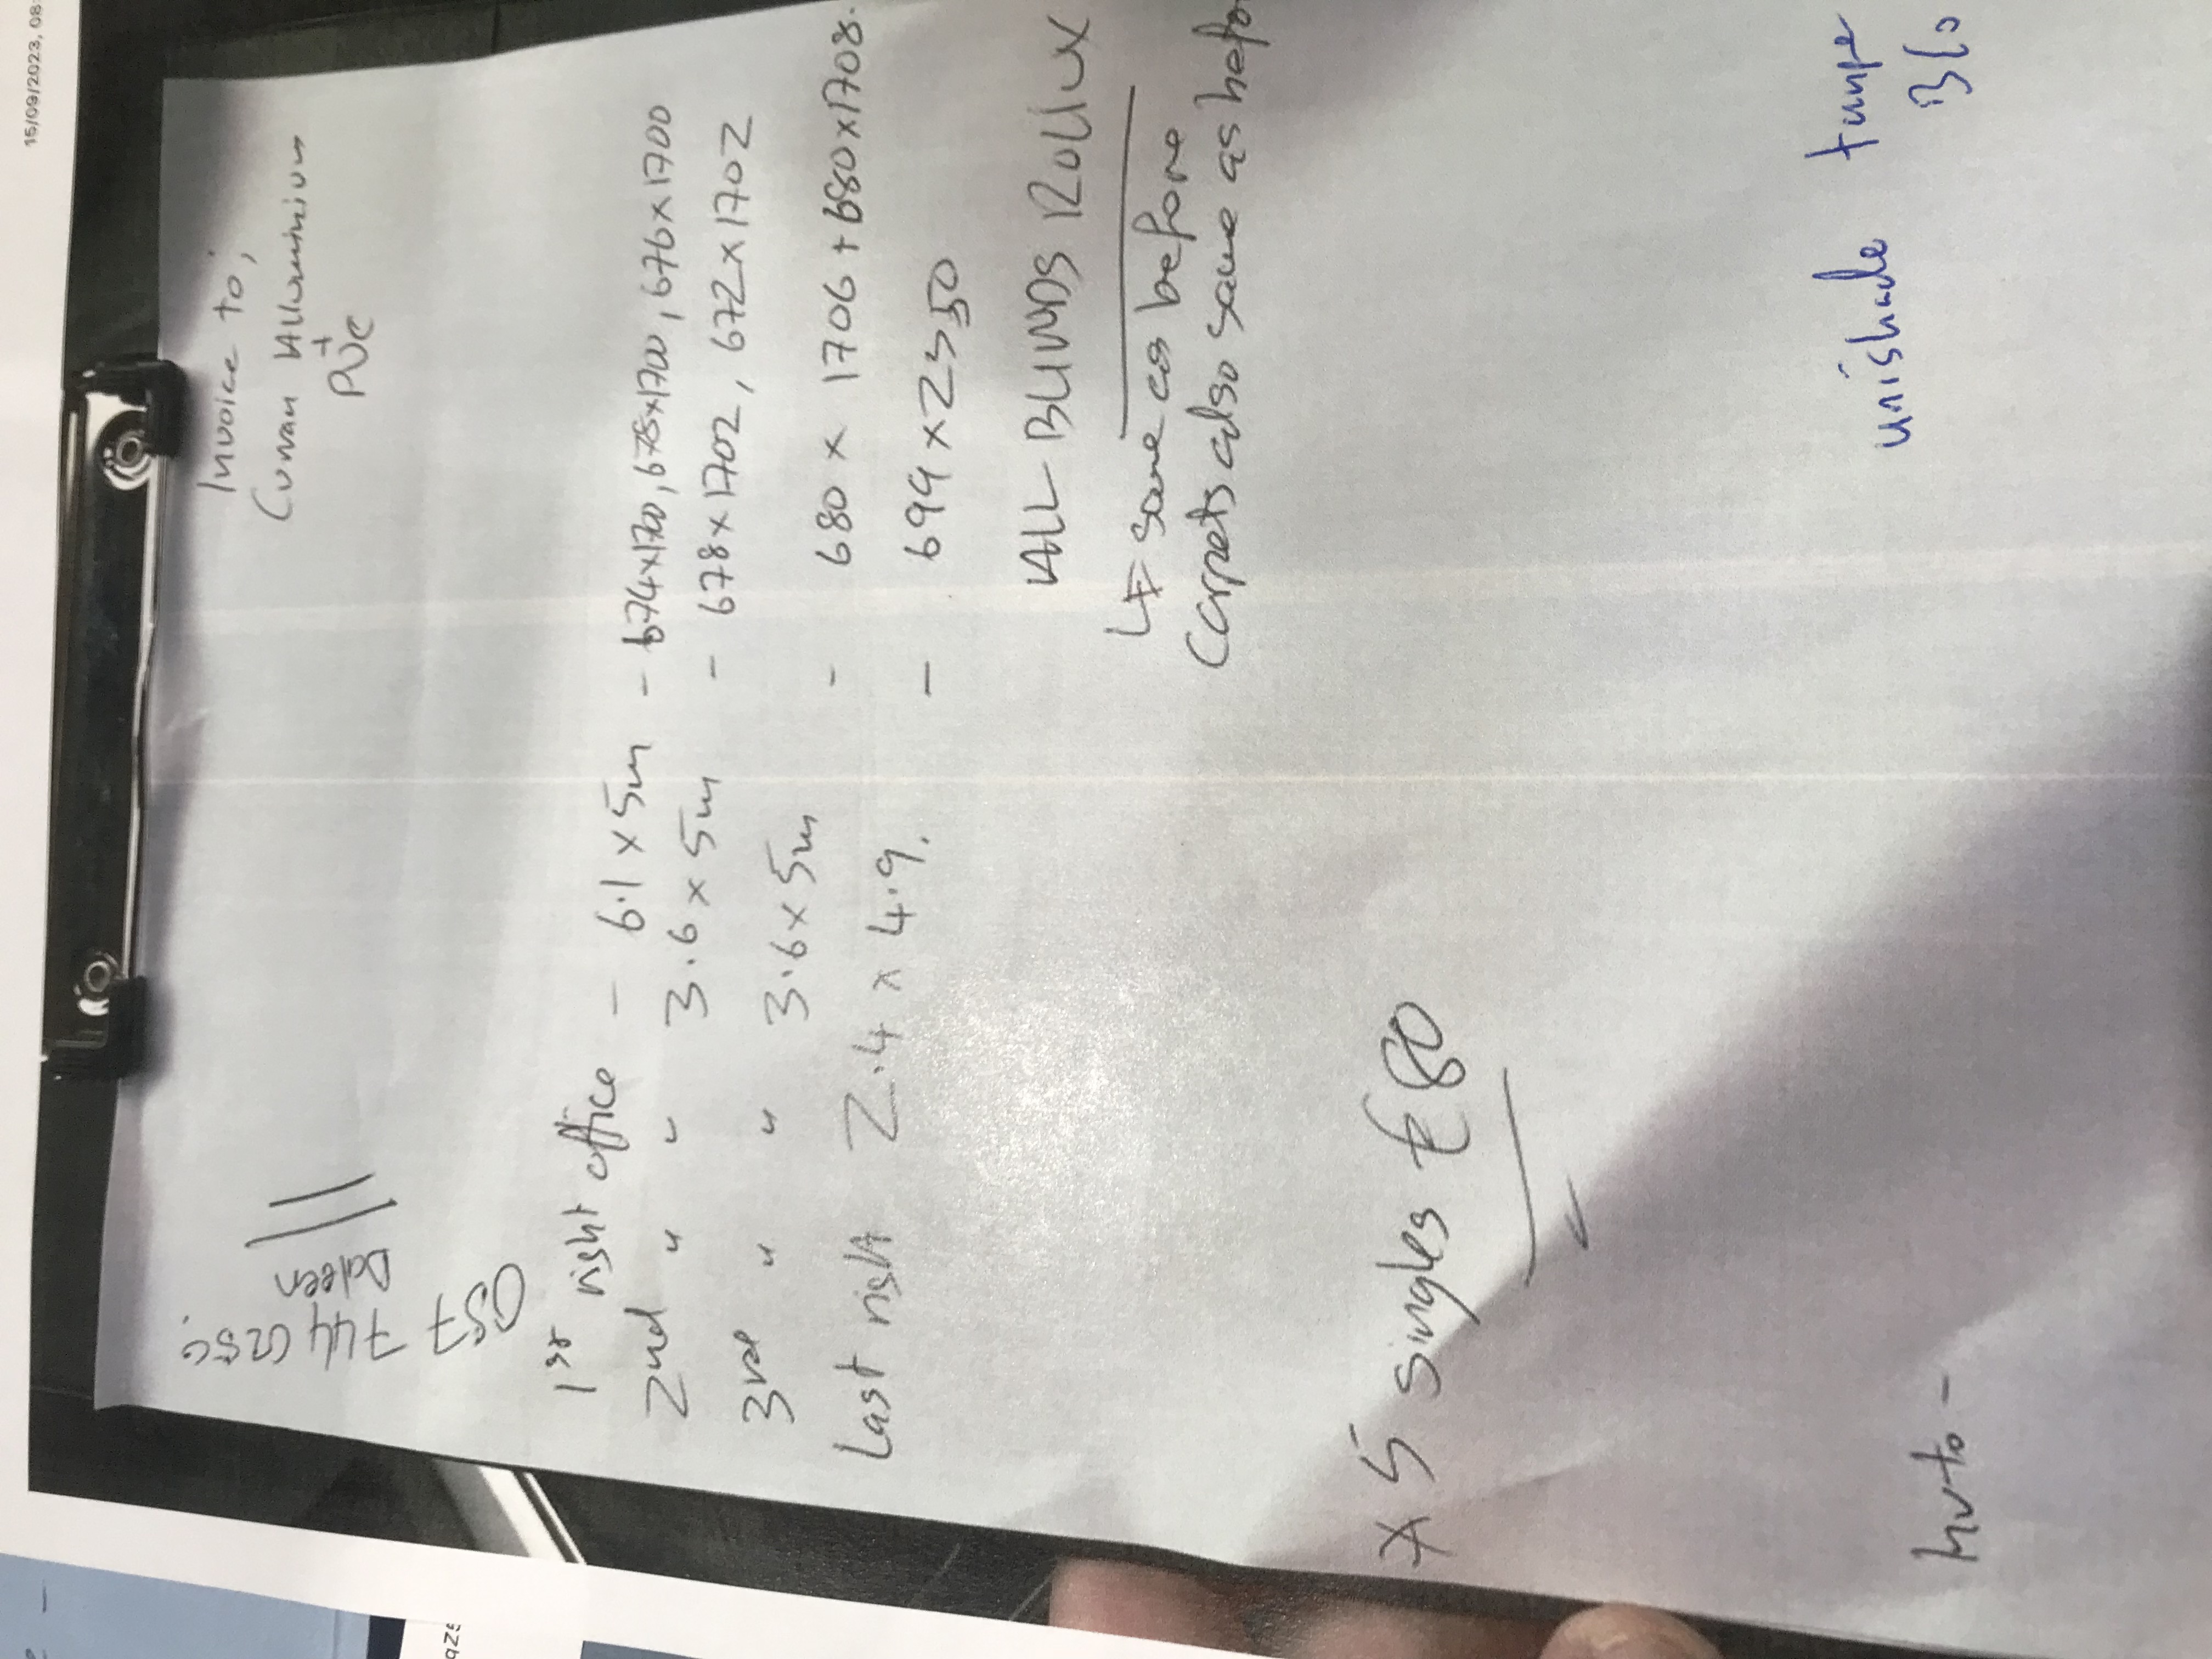 15/09/2023, 08:
Invoice to,
Curran Alluminium
+
PVC
Daleen
744
057
1st right office - 6.1 x 5m - 674x1700, 678x1700, 676x1700
2nd " " 3.6 x 5m - 678x1702, 672x1702
3rd " " 3.6 x 5m - 680 x 1706 + 680x1708.
Last right 2.4 x 4.9. - 699 x 2350
ALL BLINDS ROLLUX
same as before
Carpets also same as befo
x 5 singles €80
unishade